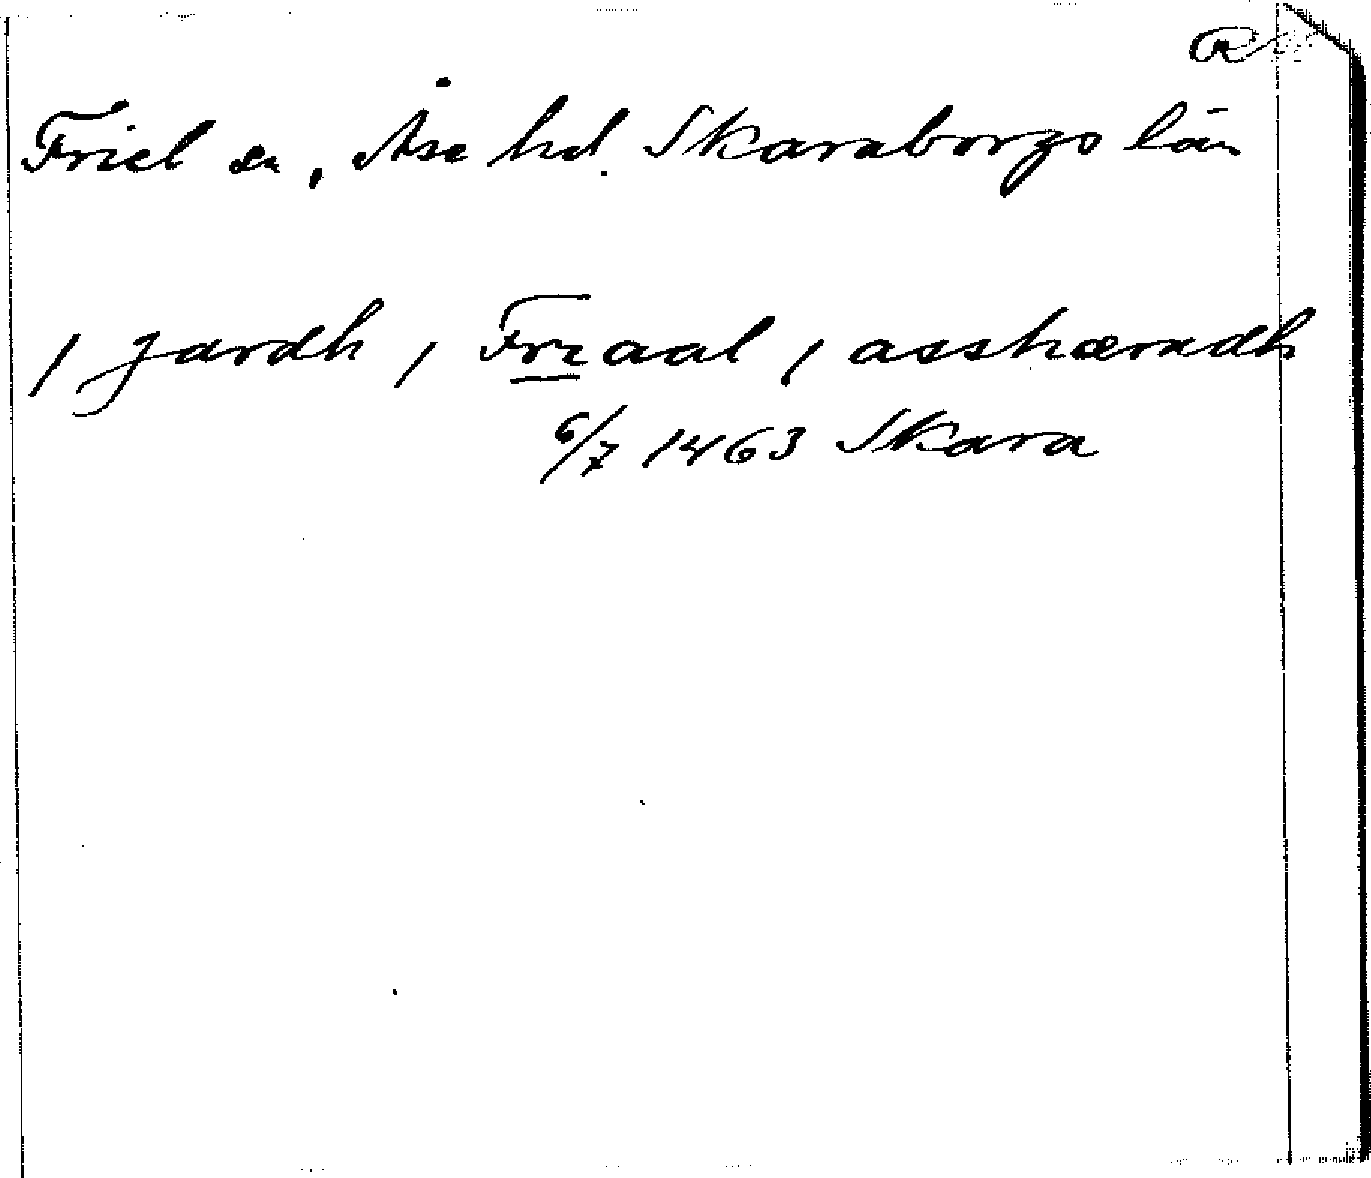 Friel sn, Åse hd. Skaraborgs län
j jardh j Frzaal j asshæradh
6/7 1463 Skara